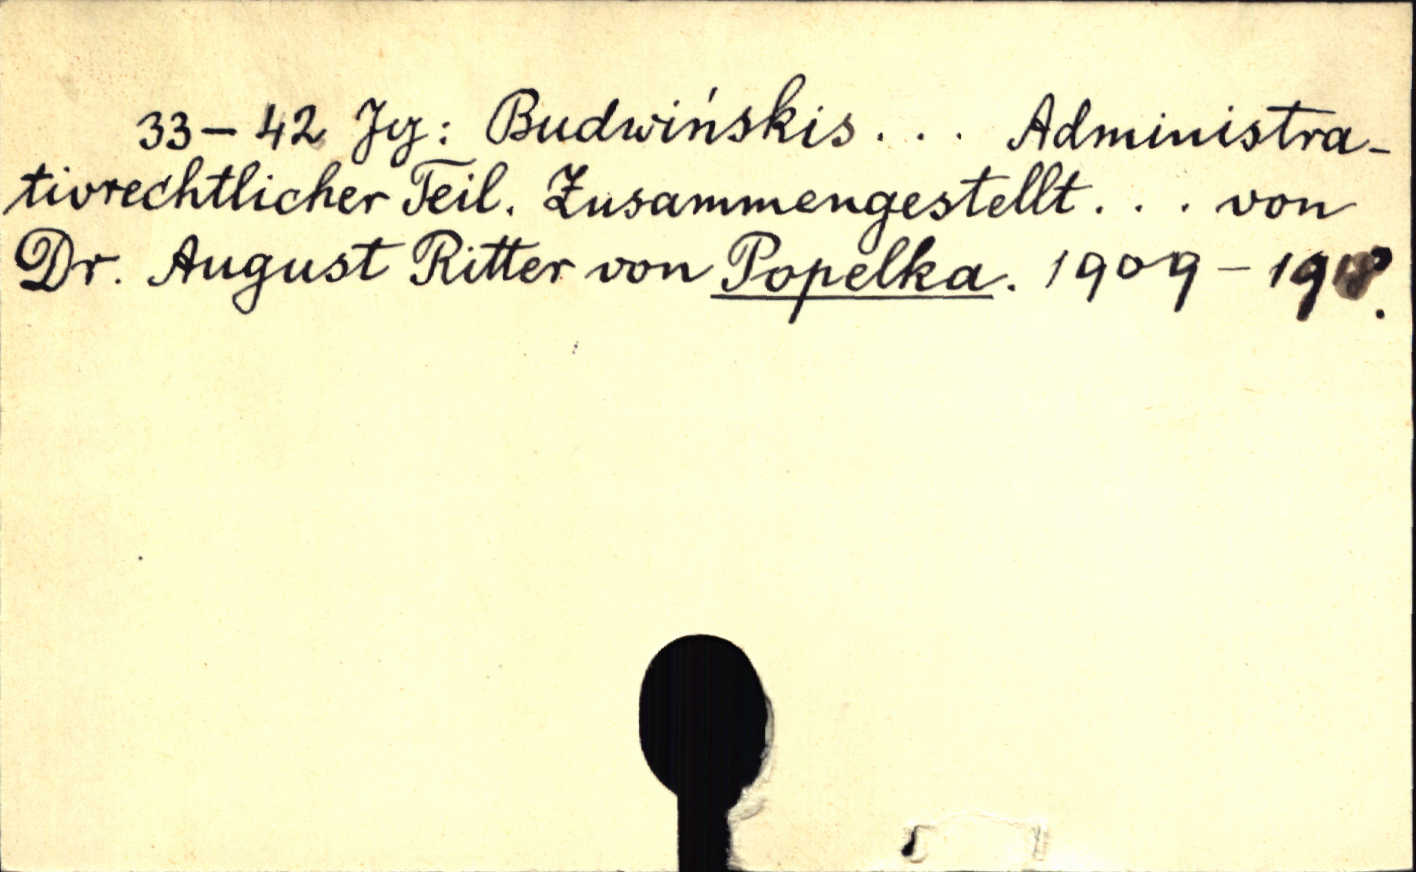 33 – 42 Jg: Budwińskis . . . Administra-
tivrechtlicher Teil. Zusammengestellt . . . von
Dr. August Ritter von Popelka. 1909 – 1918.